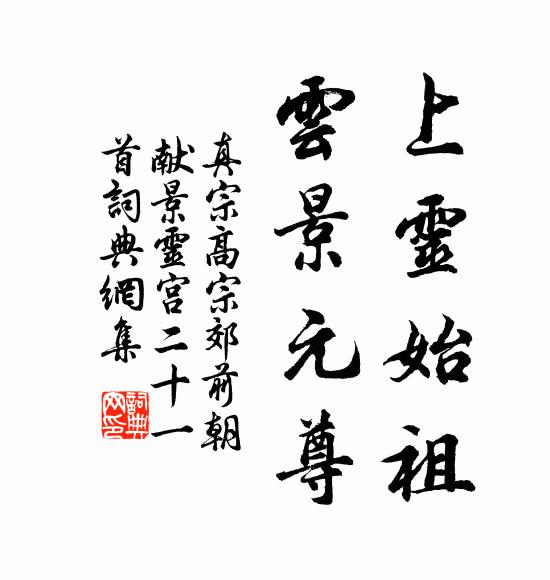 上靈始祖
雲景元尊
真宗高宗郊前朝
献景靈宮二十一
首詞典網集
詞典
网印